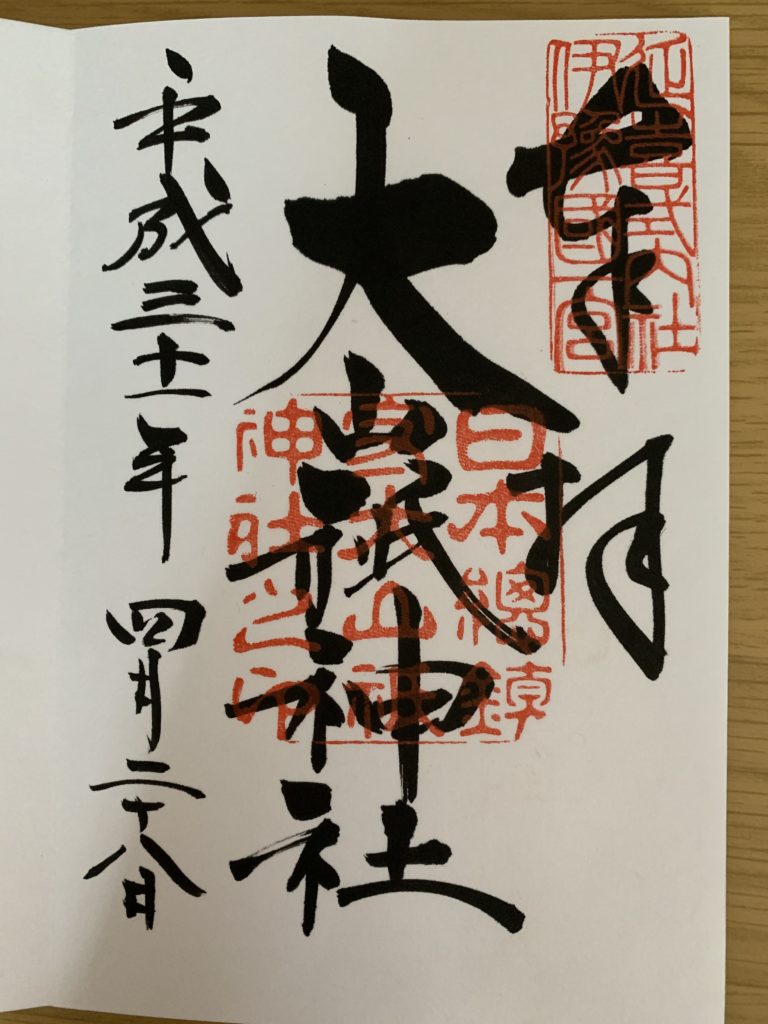 奉拝
延喜式内社
伊豫國一宮
大山祇神社
日本總鎮
守大山祇
神社之印
平成三十一年四月二十八日